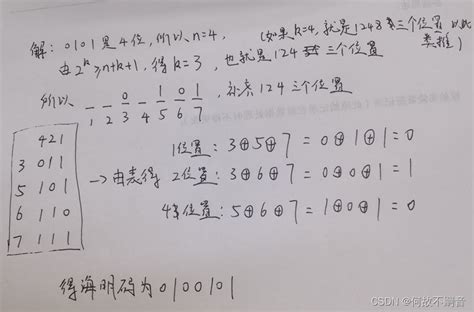 解：0101是4位，所以n=4，（如果k=4，就是1248 三个位置 以此类推）
由2^k≥n+k+1，得k=3，也就是124 三个位置
所以 _ _ 0 _ 1 0 1，补充124三个位置
1 2 3 4 5 6 7
421
3 011
5 101
6 110
7 111
→由表得
1位置：3⊕5⊕7=0⊕1⊕1=0
2位置：3⊕6⊕7=0⊕0⊕1=1
4位置：5⊕6⊕7=1⊕0⊕1=0
得海明码为0100101
CSDN @何故不谓音